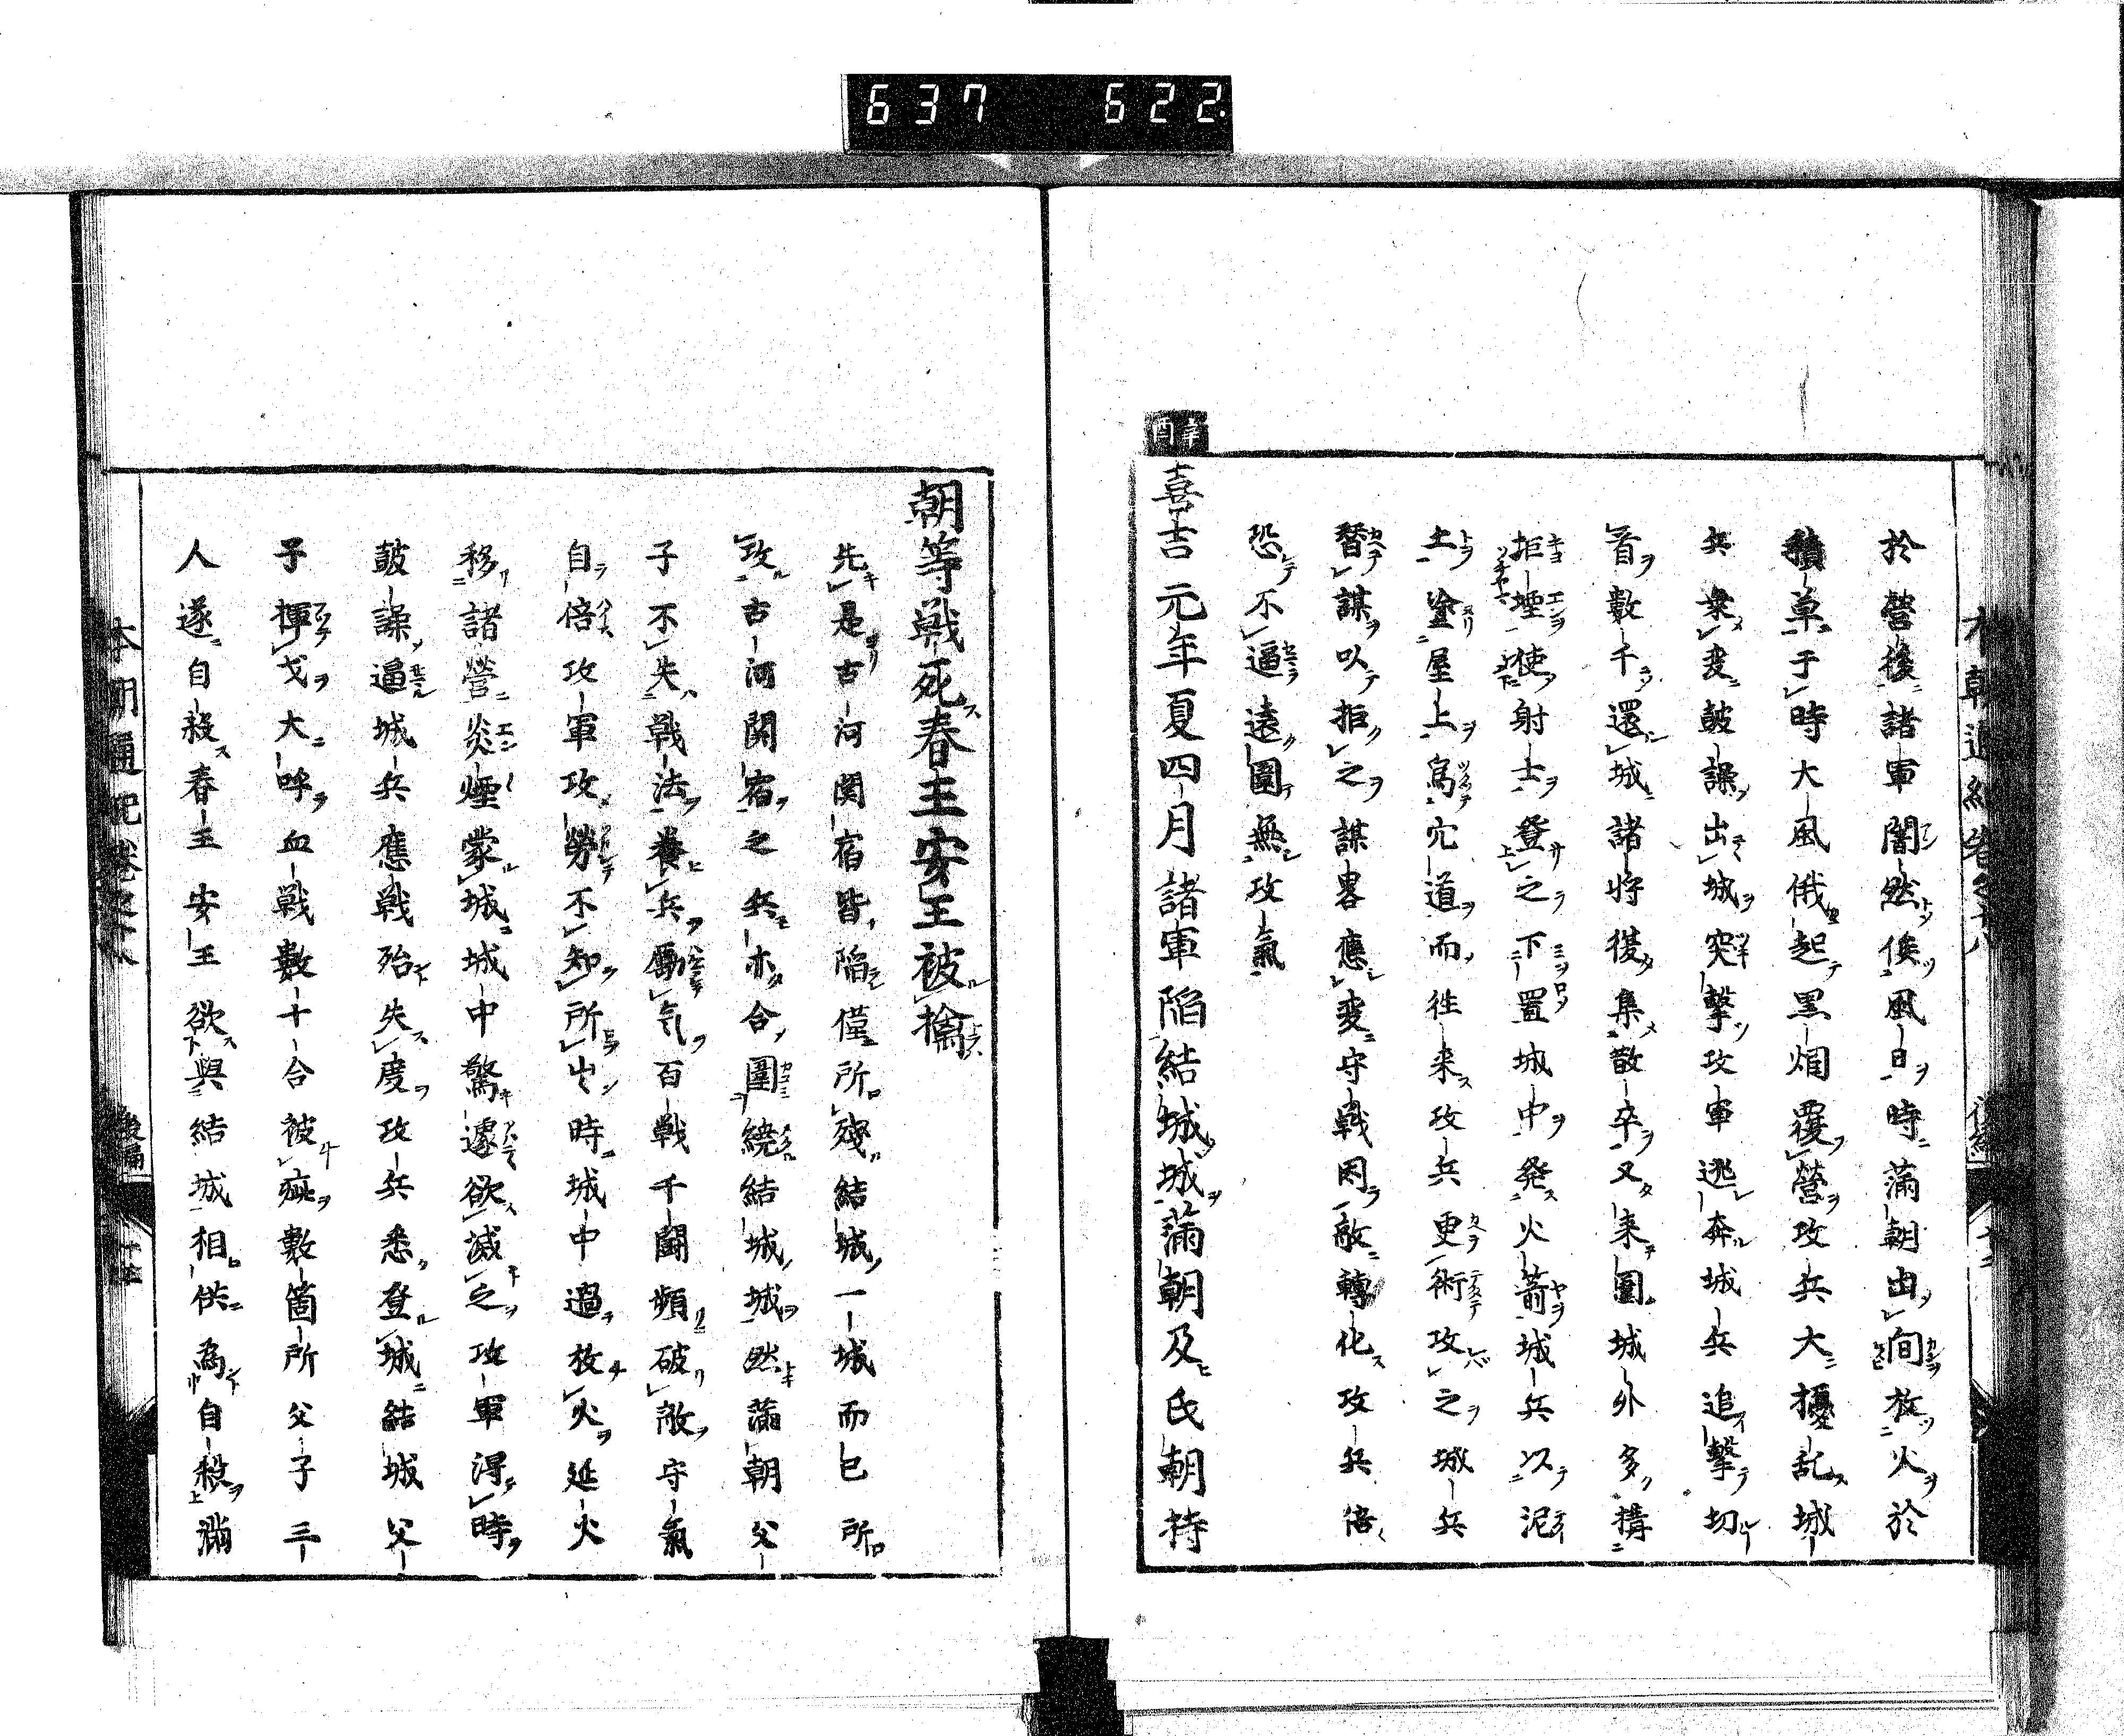 637 622.
辛酉
於營後諸軍闇然俟風日時滿朝由間放火於
積草于時大風俄起黒烟覆營攻兵大擾乱城
兵乘変皷譟出城突擊攻軍逃奔城兵追擊切
首數千還城諸将復集散卒又来圍城外多搆
拒堙使射士登之下置城中発火箭城兵以泥
土塗屋上為穴道而徃来攻兵更術攻之城兵
替謀以拒之謀畧應変守戦因敵轉化攻兵倍
恐不逼遠圍無攻氣
喜吉元年夏四月諸軍陷結城城滿朝及氏朝持
朝等戦死春王安王被擒
先是古河関宿皆陷僅所殘結城一城而已所
攻古河関宿之兵亦合圍繞結城城然滿朝父
子不失戦法養兵勵気百戦千闘頻破敵守氣
自倍攻軍攻勞不知所出時城中過放火延火
移諸營炎煙蒙城城中驚遽欲滅之攻軍得時
皷譟逼城兵應戦殆失度攻兵悉登城結城父
子揮戈大呼血戦數十合被疵數箇所父子三
人遂自殺春王安王欲與結城相供為自殺滿
本朝通紀卷之十八 後編